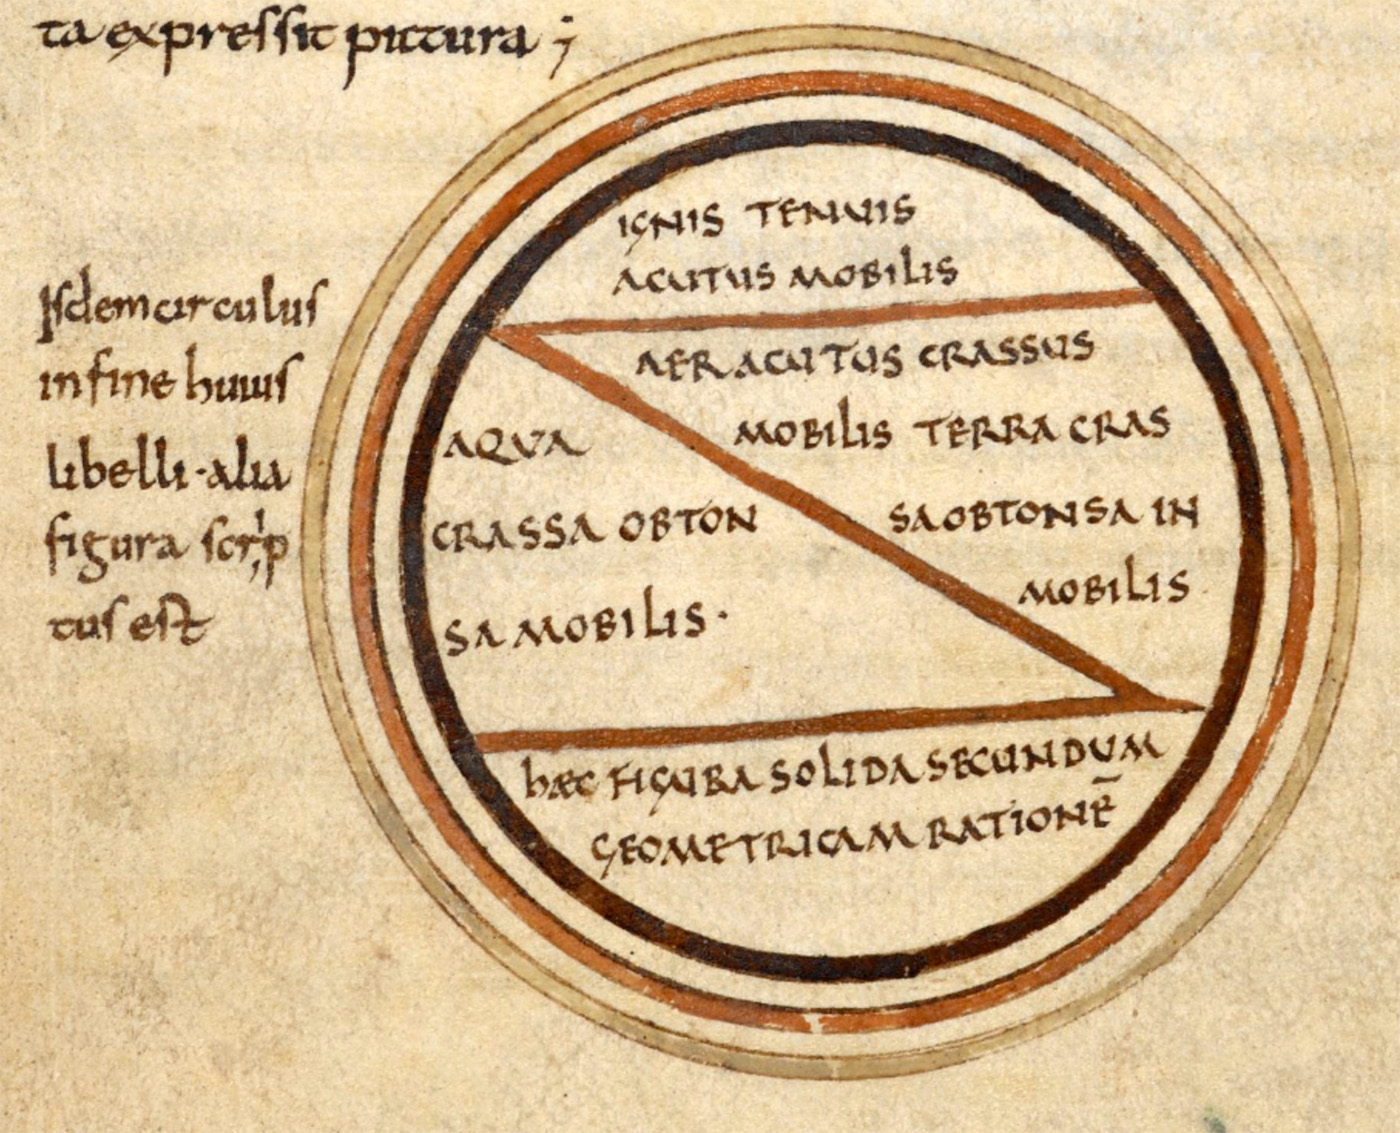 ta expressit pictura ;
Isdem circulus
in fine huius
libelli · alia
figura scrip
tus est
IGNIS TENUIS
ACUTUS MOBILIS
AER ACUTUS CRASSUS
MOBILIS TERRA CRAS
SA OBTONSA IN
MOBILIS
AQVA
CRASSA OBTON
SA MOBILIS ·
hÆC FIGURA SOLIDA SECUNDUM
GEOMETRICAM RATIONĒ